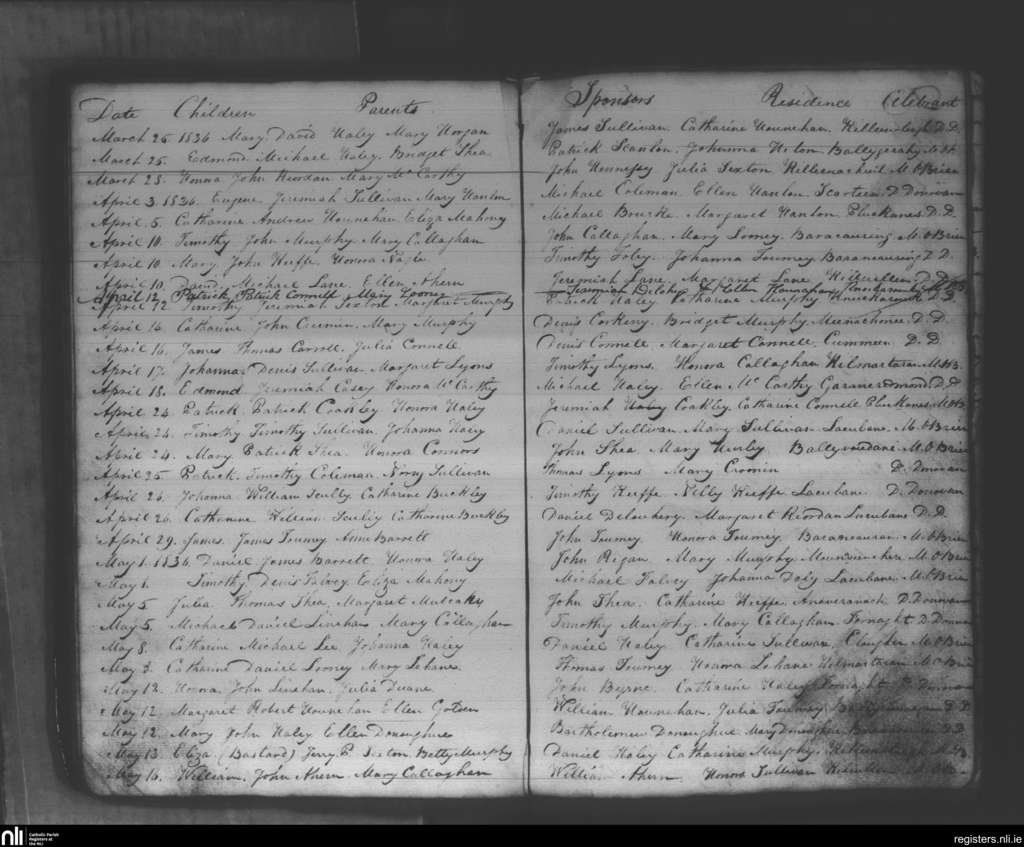 Date Children Parents
March 25 1836 Mary David Haley Mary Horgan
March 25. Edmond Michael Haley. Bridget Shea
March 25. Honna John Riordan Mary McCarthy
April 3. 1836. Eugene Jeremiah Sullivan Mary Hanlon
April 5. Catharine Andrew Hounehan Eliza Mahony
April 10. Timothy John Murphy Mary Callaghan
April 10. Mary. John Keeffe. Honora Nagle
April 10. David. Michael Lane. Ellen Ahern
April 12 Patrick Patrick Connell Mary Looney
April 12. Timothy Jeremiah Sexton Margaret Murphy
April 16. Catharine John Mary Murphy
April 16. James Thomas Carroll. Julia Connell
April 17. Johanna Denis Sullivan. Margaret Lyons
April 18. Edmond Jeremiah Casey Honora McCarthy
April 24. Patrick Patrick Coakley Honora Haley
April 24. Timothy Timothy Sullivan. Johanna Haly
April 24. Mary. Patrick Shea. Honora Connors
April 25. Patrick. Timothy Coleman. Norry Sullivan
April 26. Johanna William Scully Catharine Buckley
April 26. Catharine William Scully Catharine Buckley
April 29. James. James Toumey Anne Barrett
May 1. 1836. Daniel James Barrett. Honora Haley
May 1. Timothy Denis Falvey. Eliza Mahony
May 5 Julia Thomas Shea Margaret Mulcahy
May 5. Michael Daniel Linehan Mary Callaghan
May 8. Catharine Michael Lee Johanna Haley
May 3. Catharine Daniel Looney Mary Lehane
May 12. Honna. John Linehan. Julia Duane
May 12. Margaret Robert Hounehan Ellen
May 12. Mary John Haley Ellen Donoughue
May 13. Eliza (Bastard) Jery P. Sexton Betty Murphy
May 16. William. John Ahern Mary Callaghan
Sponsors Residence Celebrant
James Sullivan. Catharine Hounehan. D.D.
Patrick Scanlon. Johanna
John Hennessy Julia Sexton M. OBrien
Michael Coleman Ellen Hanlon Scarteen D Donovan
Michael Bourke. Margaret Hanlon Pluckanes D.D.
John Callaghan. Mary Looney. M. OBrien
Timothy Foley. Johanna Toumey D.D.
Jeremiah Lane. Margaret Lane Kilcullen D.D.
Jeremiah & Ellen
Patrick Haley Catharine Murphy D.D.
Denis Corkery. Bridget Murphy D.D.
Denis Connell Margaret Connell. Cummeen D.D.
Timothy Lyons. Honora Callaghan Kilmartin M.OB.
Michael Haley. Ellen McCarthy Garraneredmond D.D.
Jeremiah Haley Coakley. Catharine Connell Pluckanes M.OB.
Daniel Sullivan. Mary Sullivan. Lacubane. M. OBrien
John Shea. Mary Hurley M. OBrien
Thomas Lyons Mary Cronin D. Donovan
Timothy Keeffe. Nelly Keeffe Lacubane. D. Donovan
Daniel Margaret Riordan Lacubane D.D.
John Toumey. Honora Toumey. M. OBrien
John Regan. Mary Murphy M. OBrien
Michael Falvey Johanna Daly Lacubane M. OBrien
John Shea. Catharine Keeffe D. Donovan
Timothy Murphy. Mary Callaghan. Fornaght D. Donovan
Daniel Haley. Catharine Sullivan M. OBrien
Thomas Toumey Honora Lehane Kilmartin M. OBrien
John Byrne. Catharine Haley Fornaght D. Donovan
William Hounehan. Julia Toumey D.D.
Bartholomew Donoughue Mary Donoughue D.D.
Daniel Haley Catharine Murphy.
William Ahern Honora Sullivan Kilcullen
nli
Catholic Parish
Registers at
the NLI
registers.nli.ie